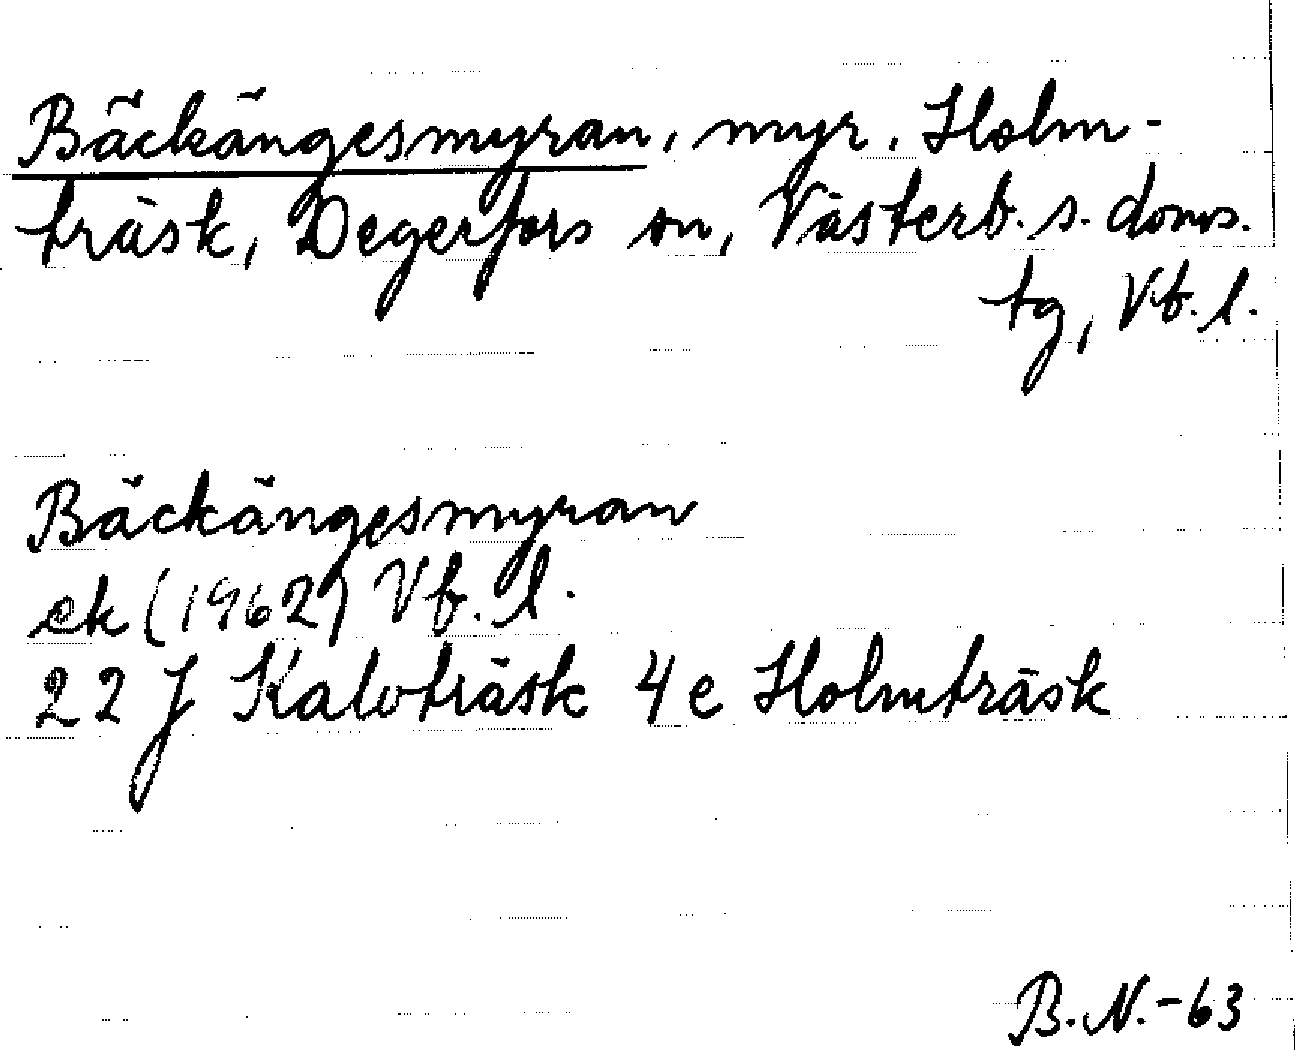 Bäckängesmyran, myr. Holm-
träsk, Degerfors sn, Västerb. s. doms.
tg, Vb. l.
Bäckängesmyran
ek (1962) Vb. l.
22 J Kalvträsk 4 e Holmträsk
B.N.-63